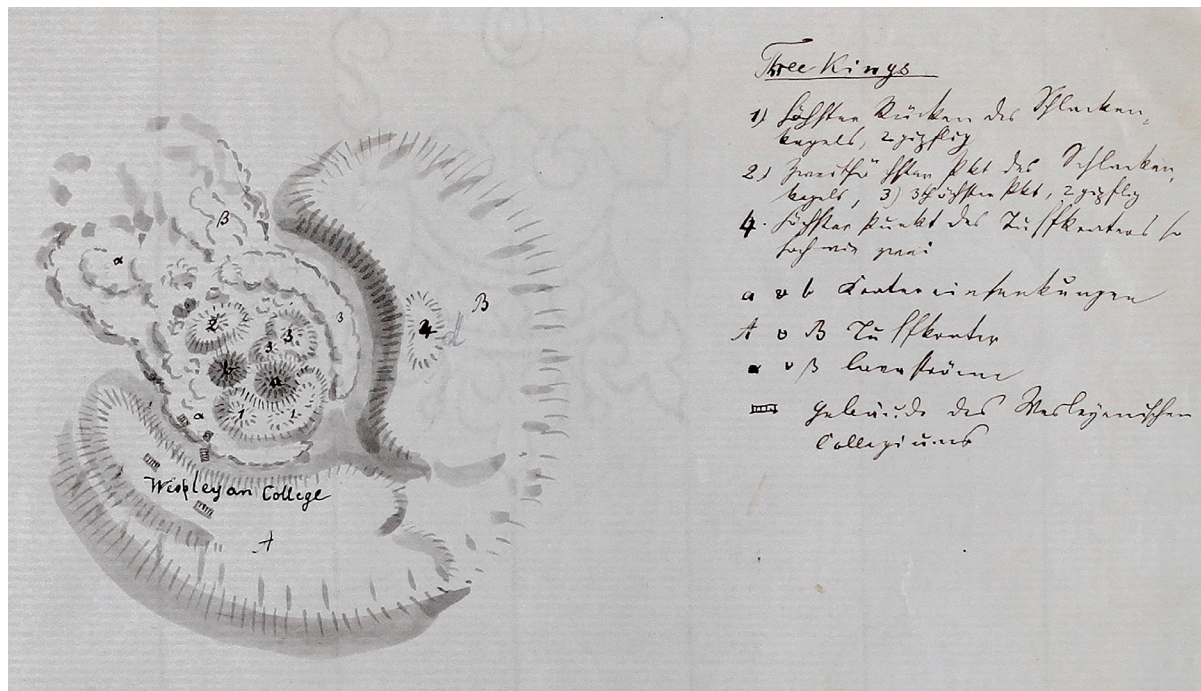 Three Kings
1) höchster Rücken des Schlacken-
kegels, 2 gipflig
2) zweithöchster Pkt des Schlacken,
kegels, 3) 3 höchster Pkt, 2 gipflig
4. höchster Punkt des Tuffkraters so
hoch wie zwei
a u b Kratereinsenkungen
A u B Tuffkrater
α u β Lavaströme
Gebäude des Wesleyanischen
Collegiums
β
α
B
2
3
3
3
4
d
b
a
1
1
α
Wesleyan College
A